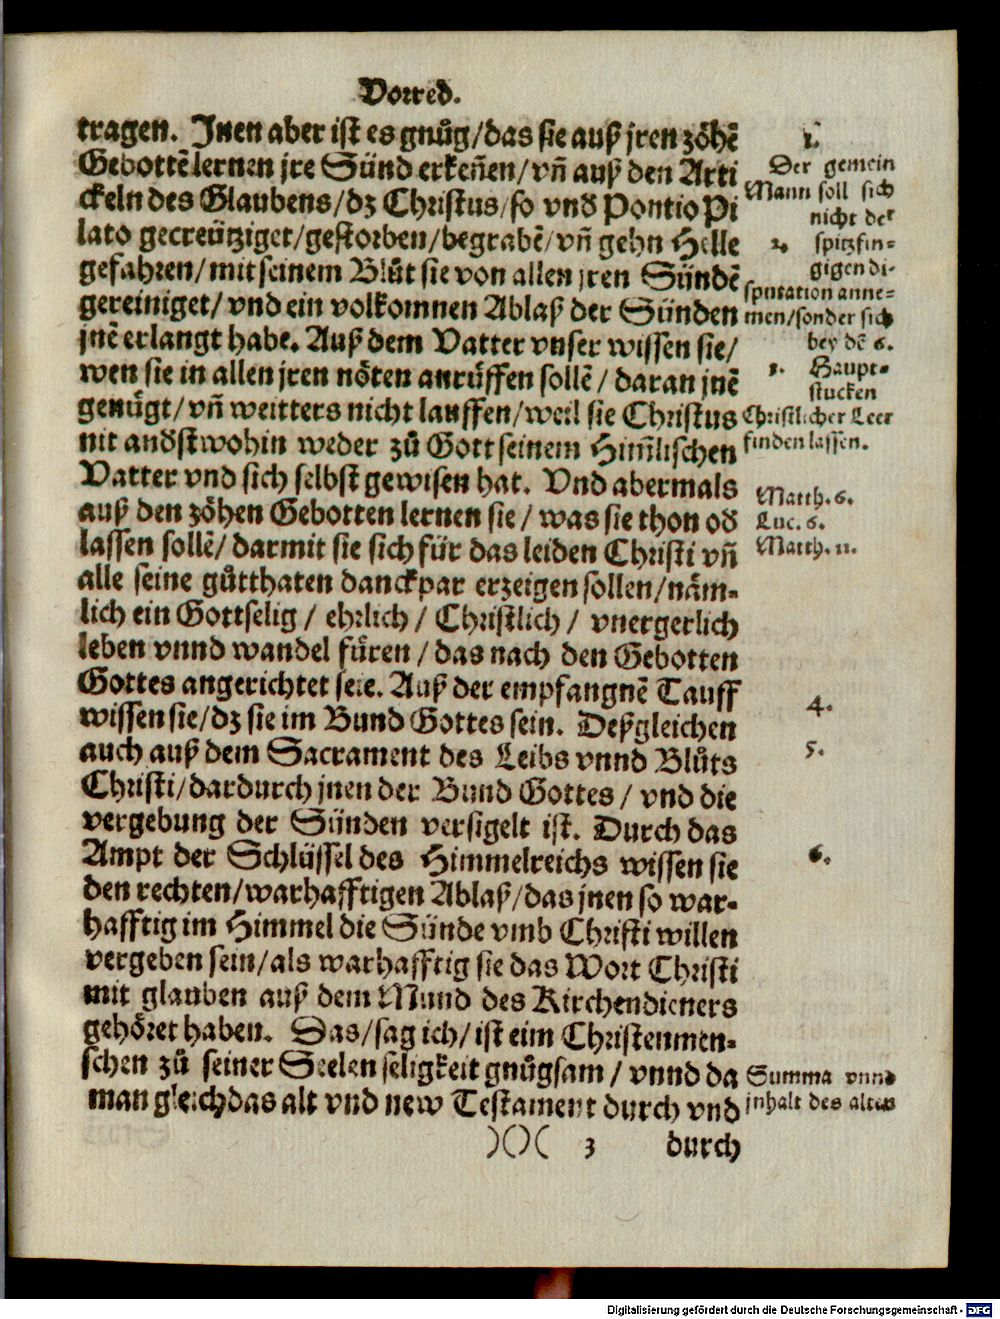 Vorred.
tragen. Jnen aber ist es gnůg/das sie auß jren zöhẽ
Gebottẽ lernen jre Sünd erkeñen/vñ auß den Arti
ckeln des Glaubens/dz Christus/so vnd Pontio Pi
lato gecreütziget/gestorben/begrabẽ/vñ gehn Helle
gefahren/mit seinem Blůt sie von allen jren Sündẽ
gereiniget/vnd ein volkomnen Ablaß der Sünden
jnẽ erlangt habe. Auß dem Vatter vnser wissen sie/
wen sie in allen jren nöten anrůffen sollẽ/daran jnẽ
genügt/vñ weitters nicht lauffen/weil sie Christus
nit andstwohin weder zů Gott seinem Him̃lischen
Vatter vnd sich selbst gewisen hat. Vnd abermals
auß den zöhen Gebotten lernen sie/was sie thon od
lassen sollẽ/darmit sie sich für das leiden Christi vñ
alle seine gůtthaten danckpar erzeigen sollen/näm-
lich ein Gottselig/ehrlich/Christlich/vnergerlich
leben vnnd wandel füren/das nach den Gebotten
Gottes angerichtet seie. Auß der empfangnẽ Tauff
wissen sie/dz sie im Bund Gottes sein. Deßgleichen
auch auß dem Sacrament des Leibs vnnd Blůts
Christi/dardurch jnen der Bund Gottes/vnd die
vergebung der Sünden versigelt ist. Durch das
Ampt der Schlüssel des Himmelreichs wissen sie
den rechten/warhafftigen Ablaß/das jnen so war-
hafftig im Himmel die Sünde vmb Christi willen
vergeben sein/als warhafftig sie das Wort Christi
mit glauben auß dem Mund des Kirchendieners
gehöret haben. Das/sag ich/ist eim Christenmen-
schen zů seiner Seelen seligkeit gnůgsam/vnnd da
man gleich das alt vnd new Testament durch vnd
)()( 3 durch
1.
Der gemein
Mann soll sich
nicht der
2. spitzfin-
gigen di-
sputation anne-
men/sonder sich
bey dẽ 6.
3. Haupt-
stucken
Christlicher Leer
finden lassen.
Matth. 6.
Luc. 6.
Matth. 11.
4.
5.
6.
Summa vnnd
jnhalt des alten
Digitalisierung gefördert durch die Deutsche Forschungsgemeinschaft - DFG